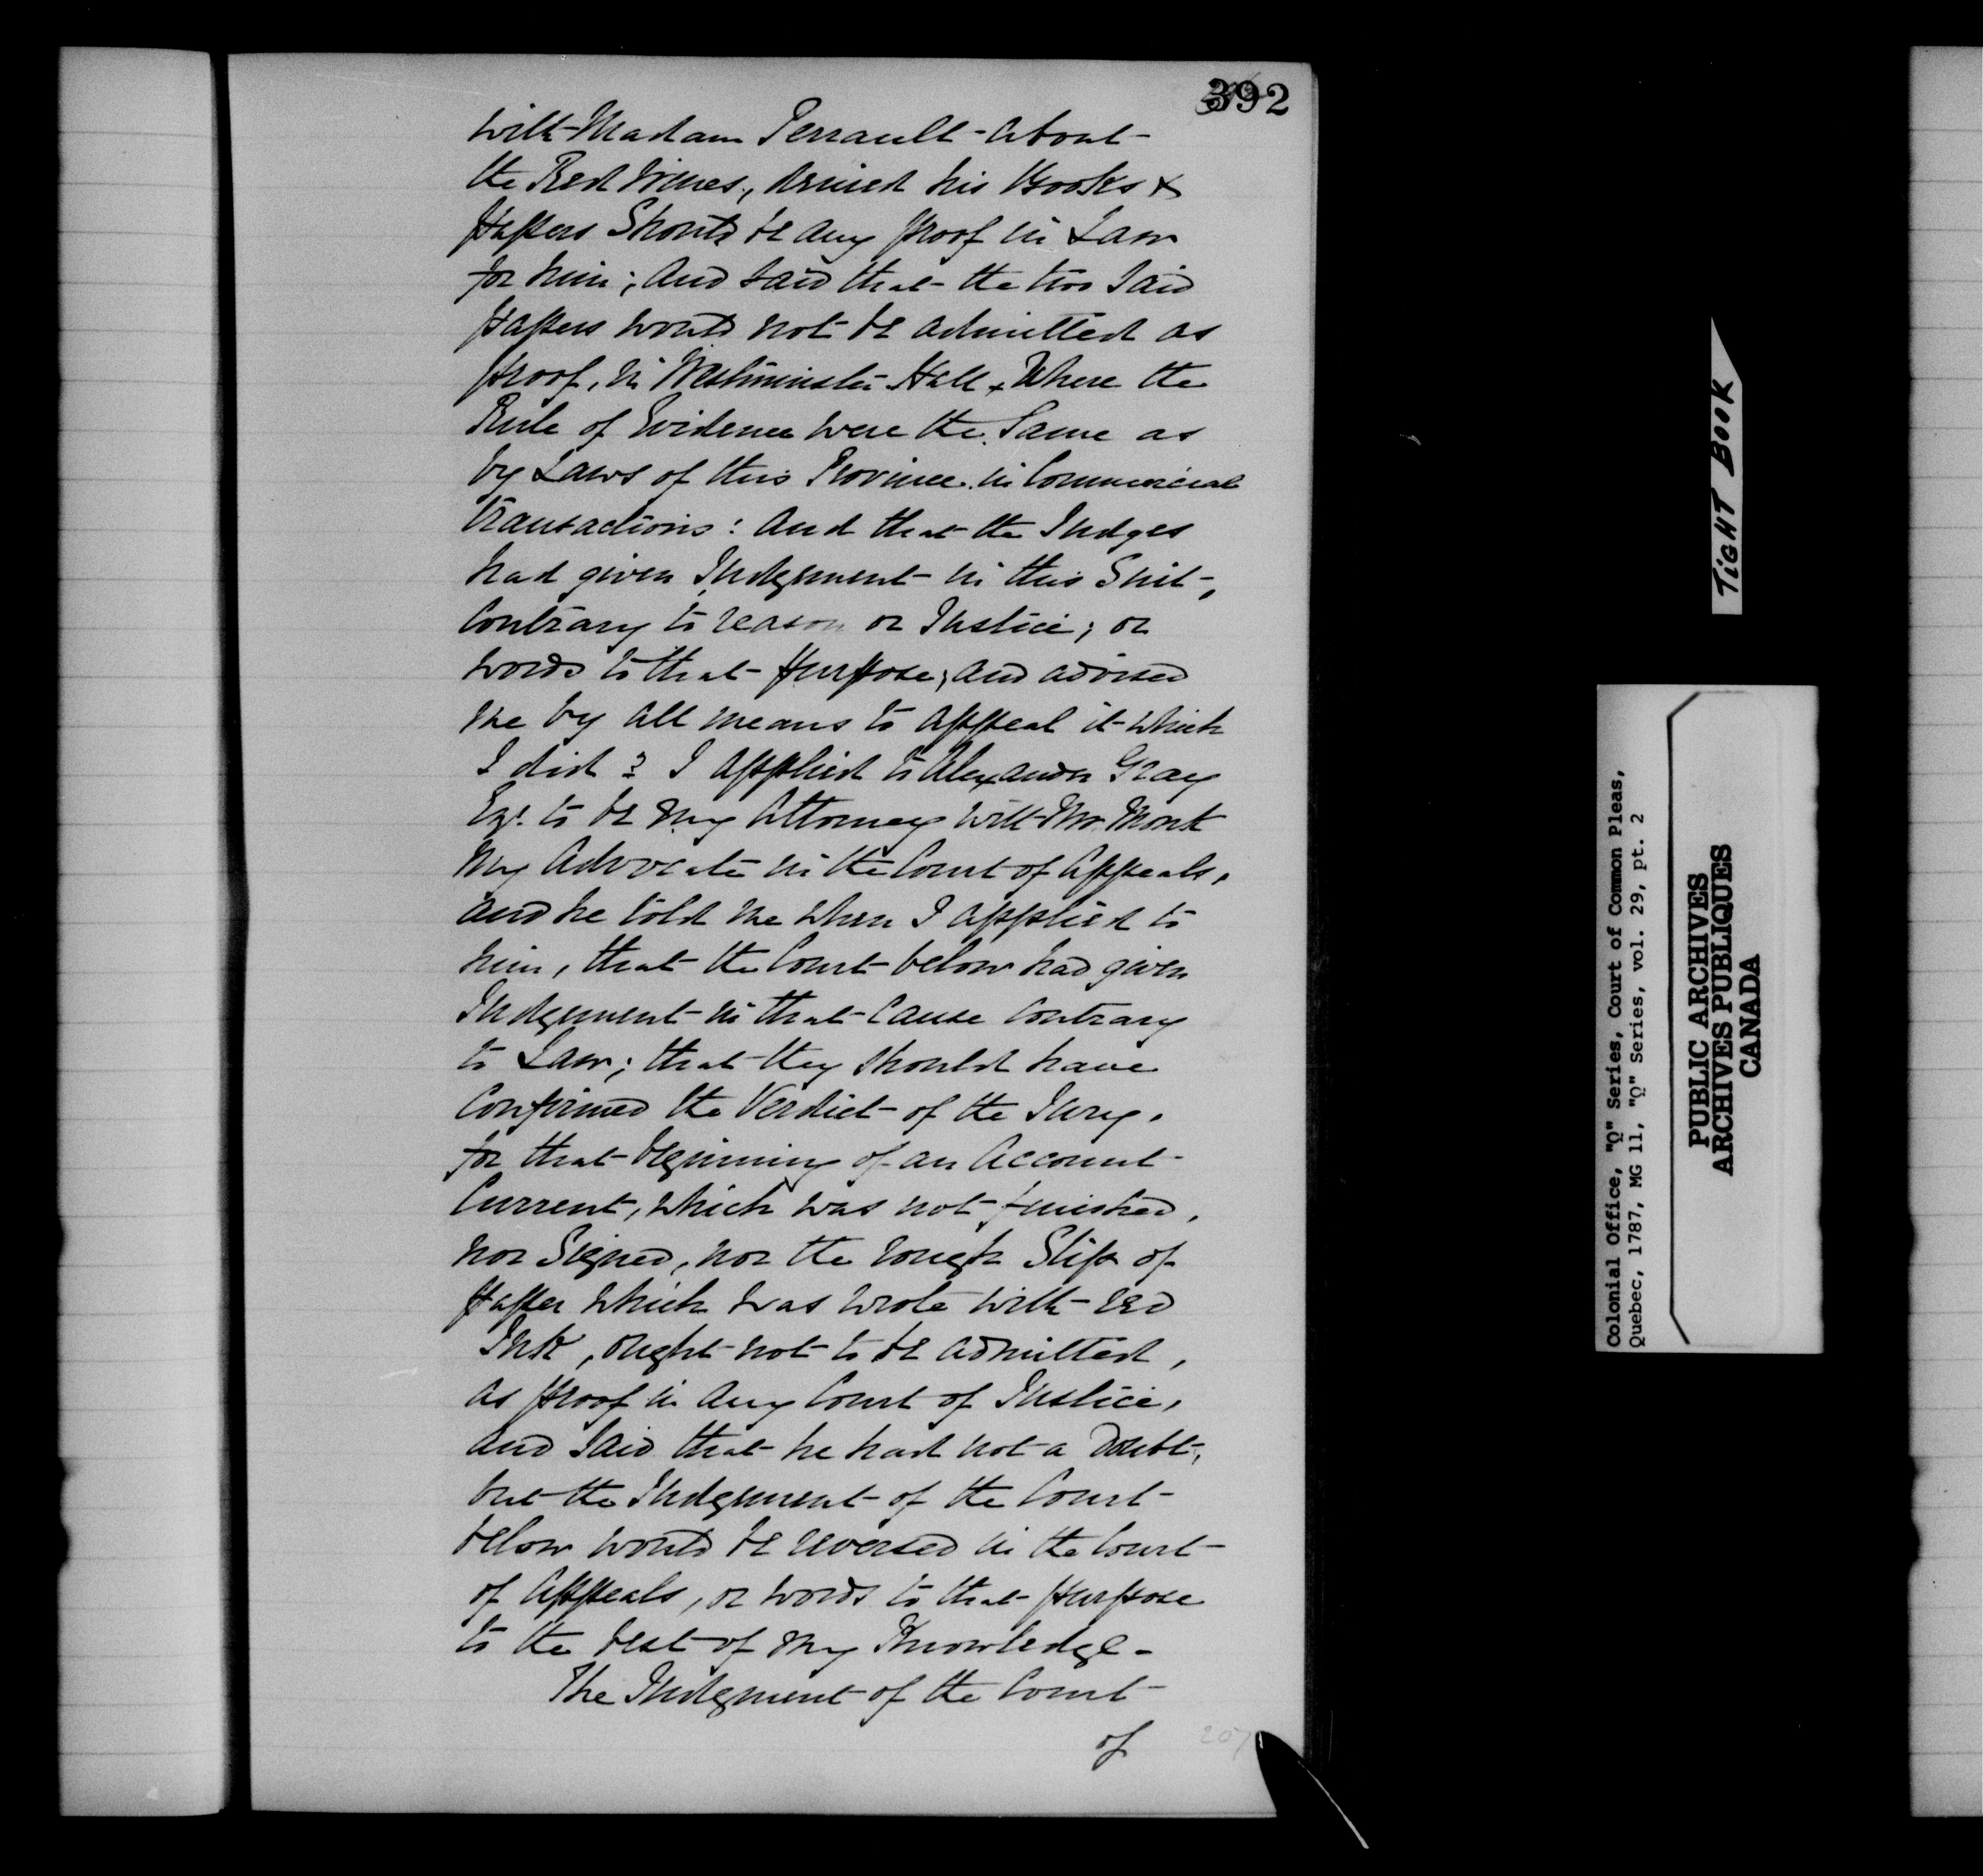 392
with Madam Perrault about
the Red Wines, denied his Books &
papers Should be any proof in Law
for him; and said that the two Said
papers would not be admitted as
proof, in Westminster Hall, Where the
Rule of Evidence were the Same as
by Laws of this Province in Commercial
transactions: and that the Judges
had given Judgement in this Suit,
Contrary to reason or Justice; or
words to that purpose; and advised
me by all means to appeal it which
I did? I applied to Alexander Gray
Eqr. to be my Attorney with Mr. Monk
my Advocate in the Court of Appeals,
and he told me when I applied to
him, that the Court below had given
Judgement in that Cause Contrary
to Law; that they should have
Confirmed the Verdict of the Jury.
for that beginning of an Account
Current, which was not finished,
nor Signed, nor the rough Slip of
paper which was wrote with red
Ink, ought not to be admitted,
as proof in any Court of Justice,
and Said that he had not a Doubt,
but the Judgement of the Court
below would be reversed in the Court
of Appeals, or words to that purpose
to the best of my Knowledge -
The Judgment of the Court
of
207
TIGHT BOOK
Colonial Office, "Q" Series, Court of Common Pleas,
Quebec, 1787, MG 11, "Q" Series, vol. 29, pt. 2
PUBLIC ARCHIVES
ARCHIVES PUBLIQUES
CANADA